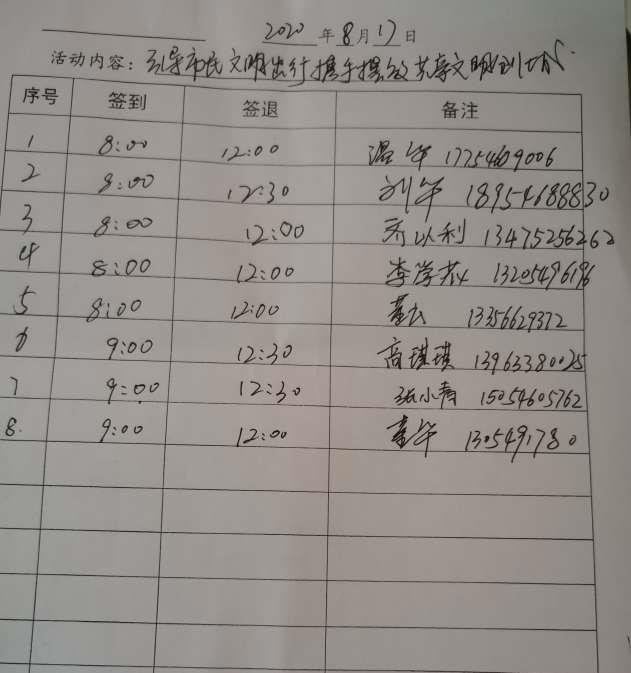 2020年8月17日
活动内容：引导市民文明出行携手摆放共享文明
序号 签到 签退 备注
1 8:00 12:00 温 17754609006
2 8:00 12:30 刘军 18954688830
3 8:00 12:00 乔以利 13475256262
4 8:00 12:00 李学 13205496196
5 8:00 12:00 13356629372
6 9:00 12:30 高琪琪 13963380025
7 9:00 12:30 张小青 15054605762
8. 9:00 12:00 1305491780